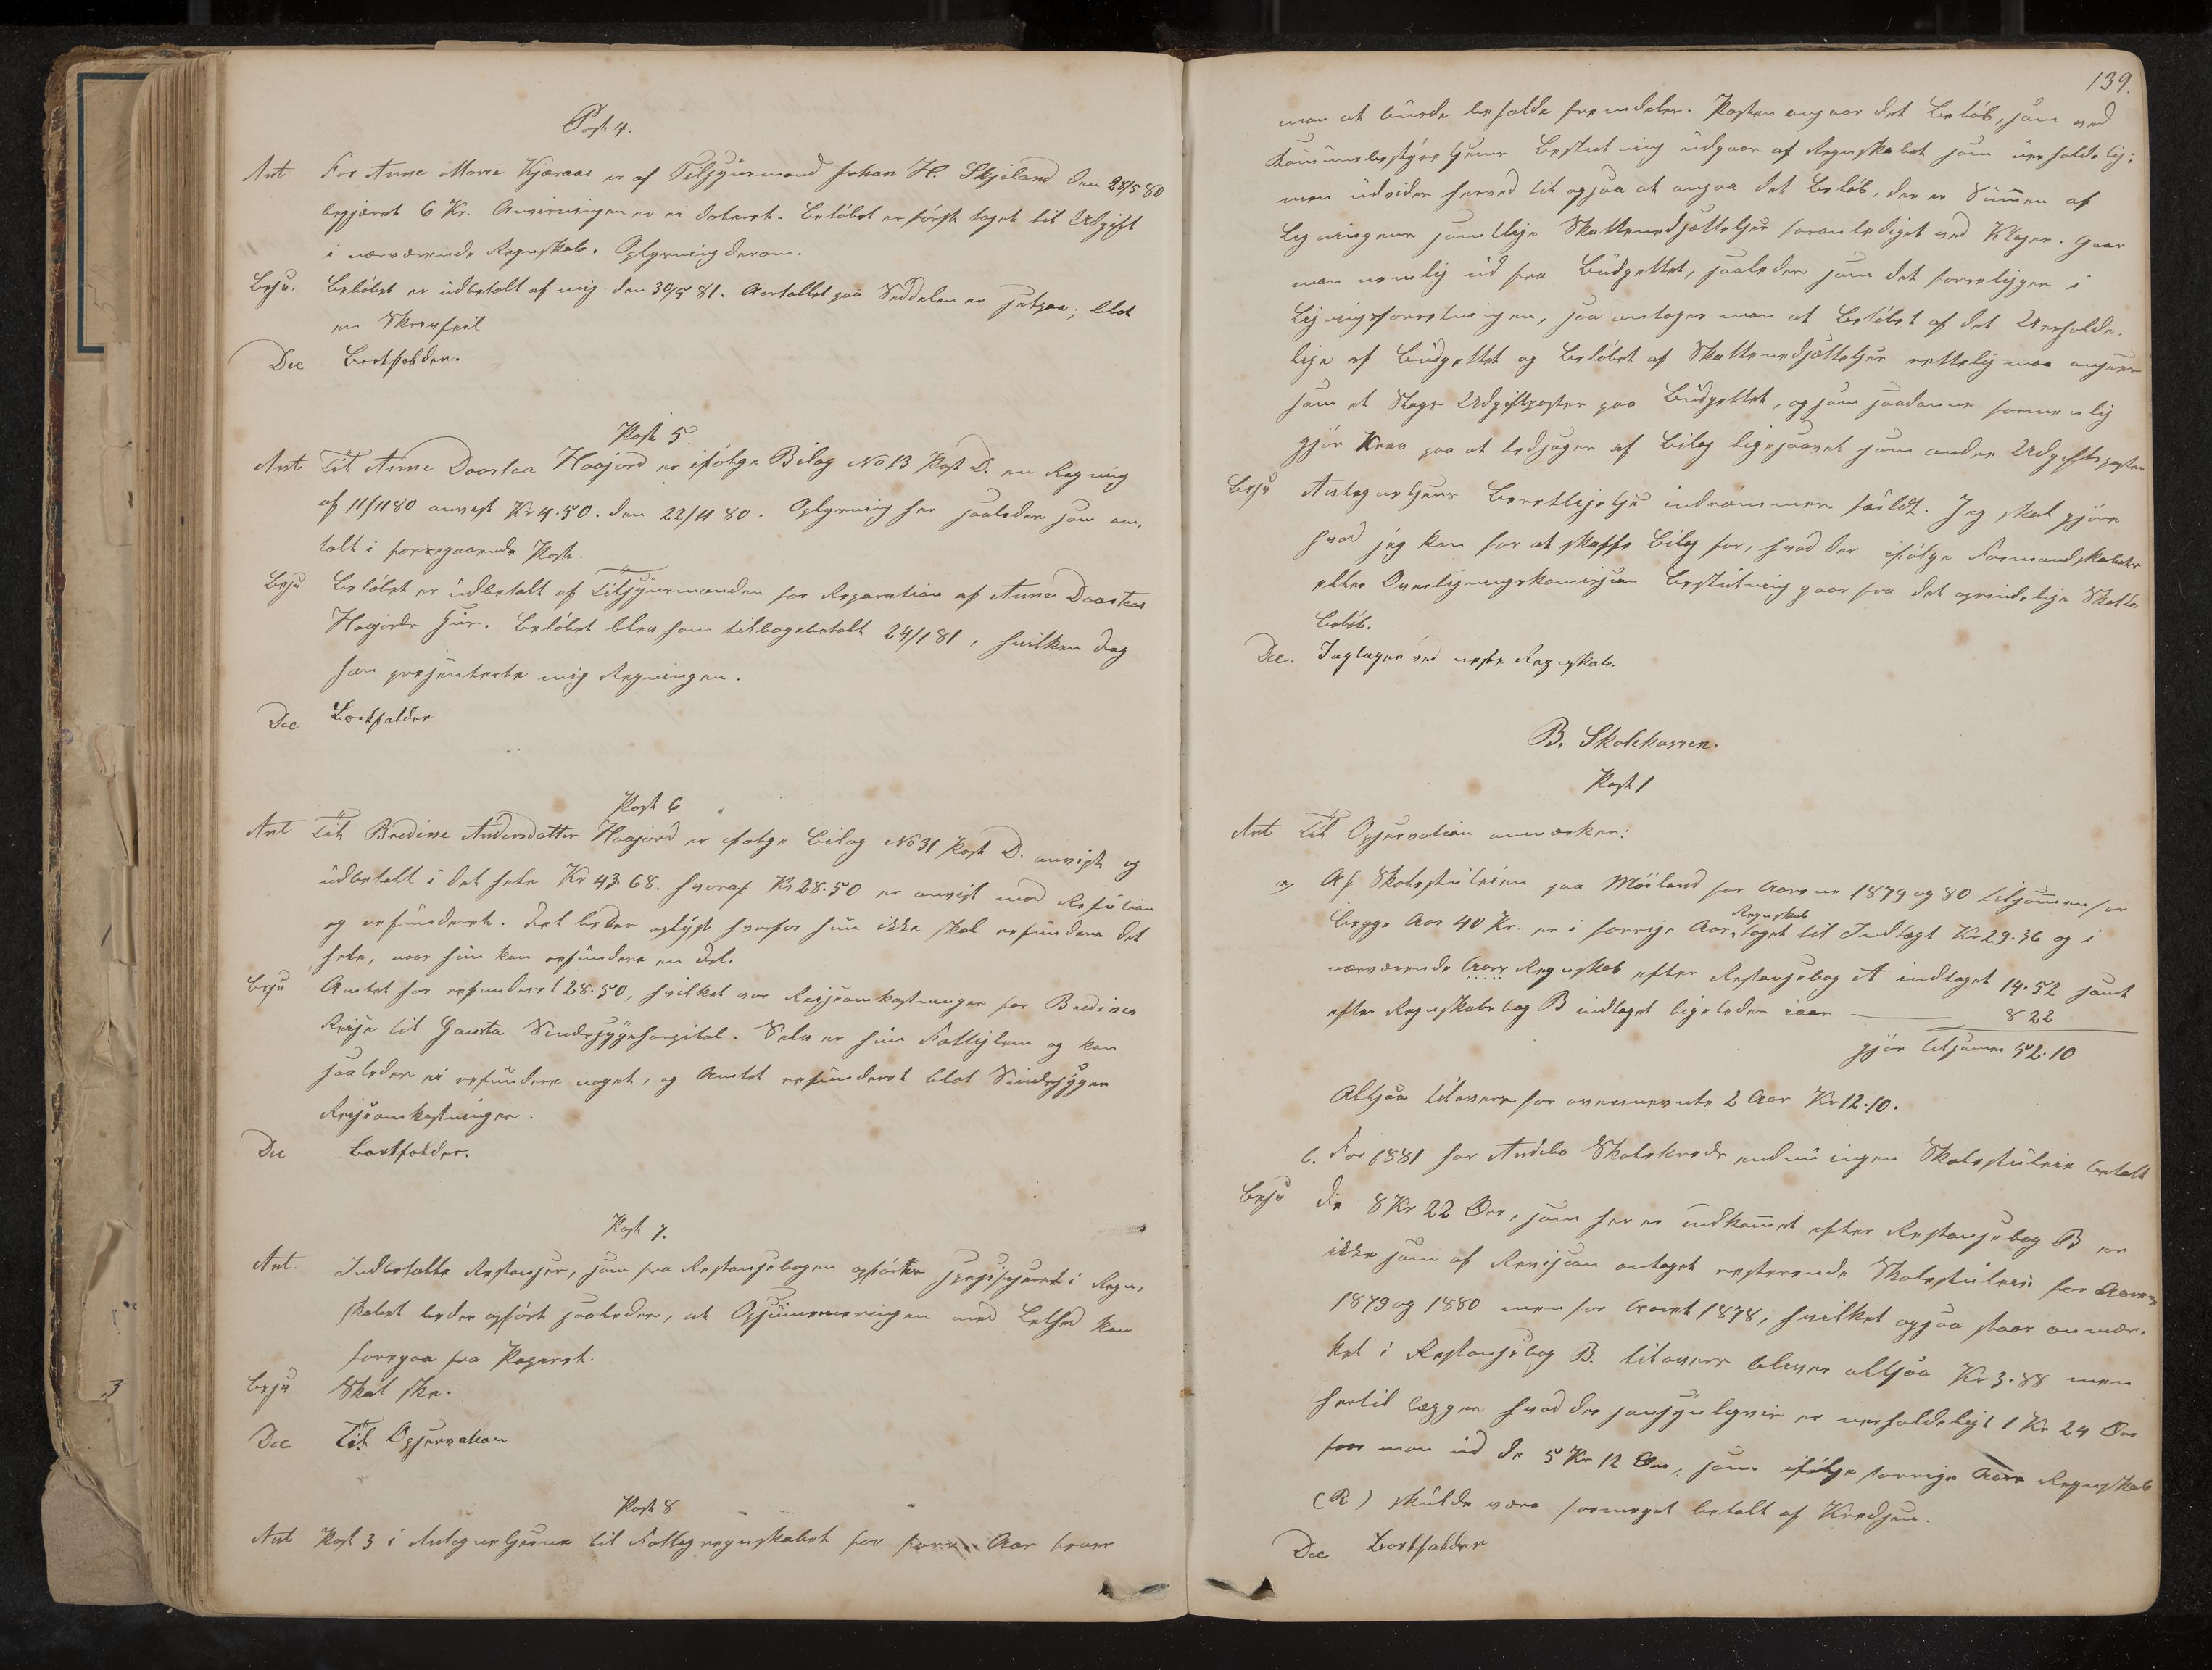 Post 4.
Ant For Anne Marie Kjæraas er af Tilsynsmand Johan H. Skjeland den 28/5 80
begjæret 6 Kr. Anvisningen er ei dateret. Beløbet er først taget til Udgift
i nærværende Regnskab. Oplysning derom.
Besv. Beløbet er udbetalt af mig den 30/5 81. Aarstallet paa Seddelen er ; blot
en Skrivfeil
Dec Bortfalder.
Post 5.
Ant Til Anne Daastea Haajord er ifølge Bilag No 13 Post D. en Regning
af 11/11 80 anvist Kr 4.50. den 22/11 80. Oplysning her saaledes som om,
talt i foregaaende Post.
Besv Beløbet er udbetalt af Tilsynsmanden for Reparation af Anne Daasteas
Hagjords Hus. Beløbet blev ham tilbagebetalt 24/1 81, hvilken Dag
han presenterte mig Regningen.
Dec Bortfalder
Post 6
Ant Til Bredine Andersdatter Haajord er ifølge Bilag No 31 Post D. anvist og
udbetalt i det hele Kr 43.68. hvoraf Kr 28.50 er anvist mod Refusion
og refunderet. Det bedes oplyst hvorfor hun ikke skal refundere det
hele, naar hun kan refundere en Del.
Besv Amtet har refunderet 28.50, hvilket var Reiseomkostninger for Bredines
Reise til Gausta Sindssygehospital. Selv er hun Fattiglem og kan
saaledes ei refundere noget, og Amtet refunderet blot Sindssyges
Reiseomkostninger.
Dec Bortfalder.
Post 7.
Ant. Indbetalte Restanser, som fra Restansebogen opføres spesifiseret i Regn,
skabet bedes opført saaledes, at Opsummeringen med Lethed kan
foregaa fra Papiret.
Besv Skal ske.
Dec Til Opservation
Post 8
Ant Post 3 i Antegnelserne til Fattigregnskabet for forr. Aar
139.
man at burde beholde fremdeles. Posten angaar det Beløb, som ved
Kommunebestyrelsens Beslutning udgaar af Regnskabet som uerholdelig;
men udvides herved til ogsaa at angaa det Beløb, der er Summen af
Ligningens samtlige Skattenedsættelser foranlediget ved Klager. Gaar
man nemlig ud fra Budgettet, saaledes som det foreligger i
Ligningsforretningen, saa antager man at Beløbet af det Uerholde,
lige af Budgettet og Beløbet af Skattenedsættelser rettelig maa ansees
som et Slags Udgiftsposter paa Budgettet, og som saadanne formentlig
gjør Krav paa at ledsages af Bilag ligesaavel som andre Udgiftsposter
Besv Antegnelsens Berettigelse indrømmes fuldt. Jeg skal gjøre
hvad jeg kan for at skaffe Bilag for, hvad der ifølge Formandskabets
eller Overligningskomissjon Beslutning gaar fra det oprindelige Skatte
beløb.
Dec. Iagtages ved neste Regnskab.
B. Skolekassen.
Post 1
Ant Til Opservation anmærkes:
a) Af Skolestuleien paa Møiland for Aarene 1879 og 80 tilsammen for
begge Aar 40 Kr. er i forrige Aars Regnskab taget til Indtægt Kr 29.36 og i
nærværende Aars Regnskab efter Restansebog A indtaget 14.52 samt
efter Regnskabsbog B indtaget ligeledes iaar 8 22
gjør tilsammen 52.10
Altsaa tilovers for ovennevnte 2 Aar Kr 12.10.
b. For 1881 har Audibo Skolekreds endnu ingen Skolestuleie betalt
Besv De 8 Kr 22 Øre, som her er indkommet efter Restansebog B er
ikke som af Revisjon antaget resterende Skolestuleie for Aarene
1879 og 1880 men for Aaret 1878, hvilket ogsaa staar anmær,
ket i Restansebog B. tilovers bliver altsaa Kr 3.88 men
hertil lægges hvad der sansynligvis er uerholdeligt 1 Kr 24 Øre
faar man ud de 5 Kr 12 Øre, som ifølge forrige Aars Regnskab
(R) skulde være formeget betalt af Kredsen.
Dec Bortfalder